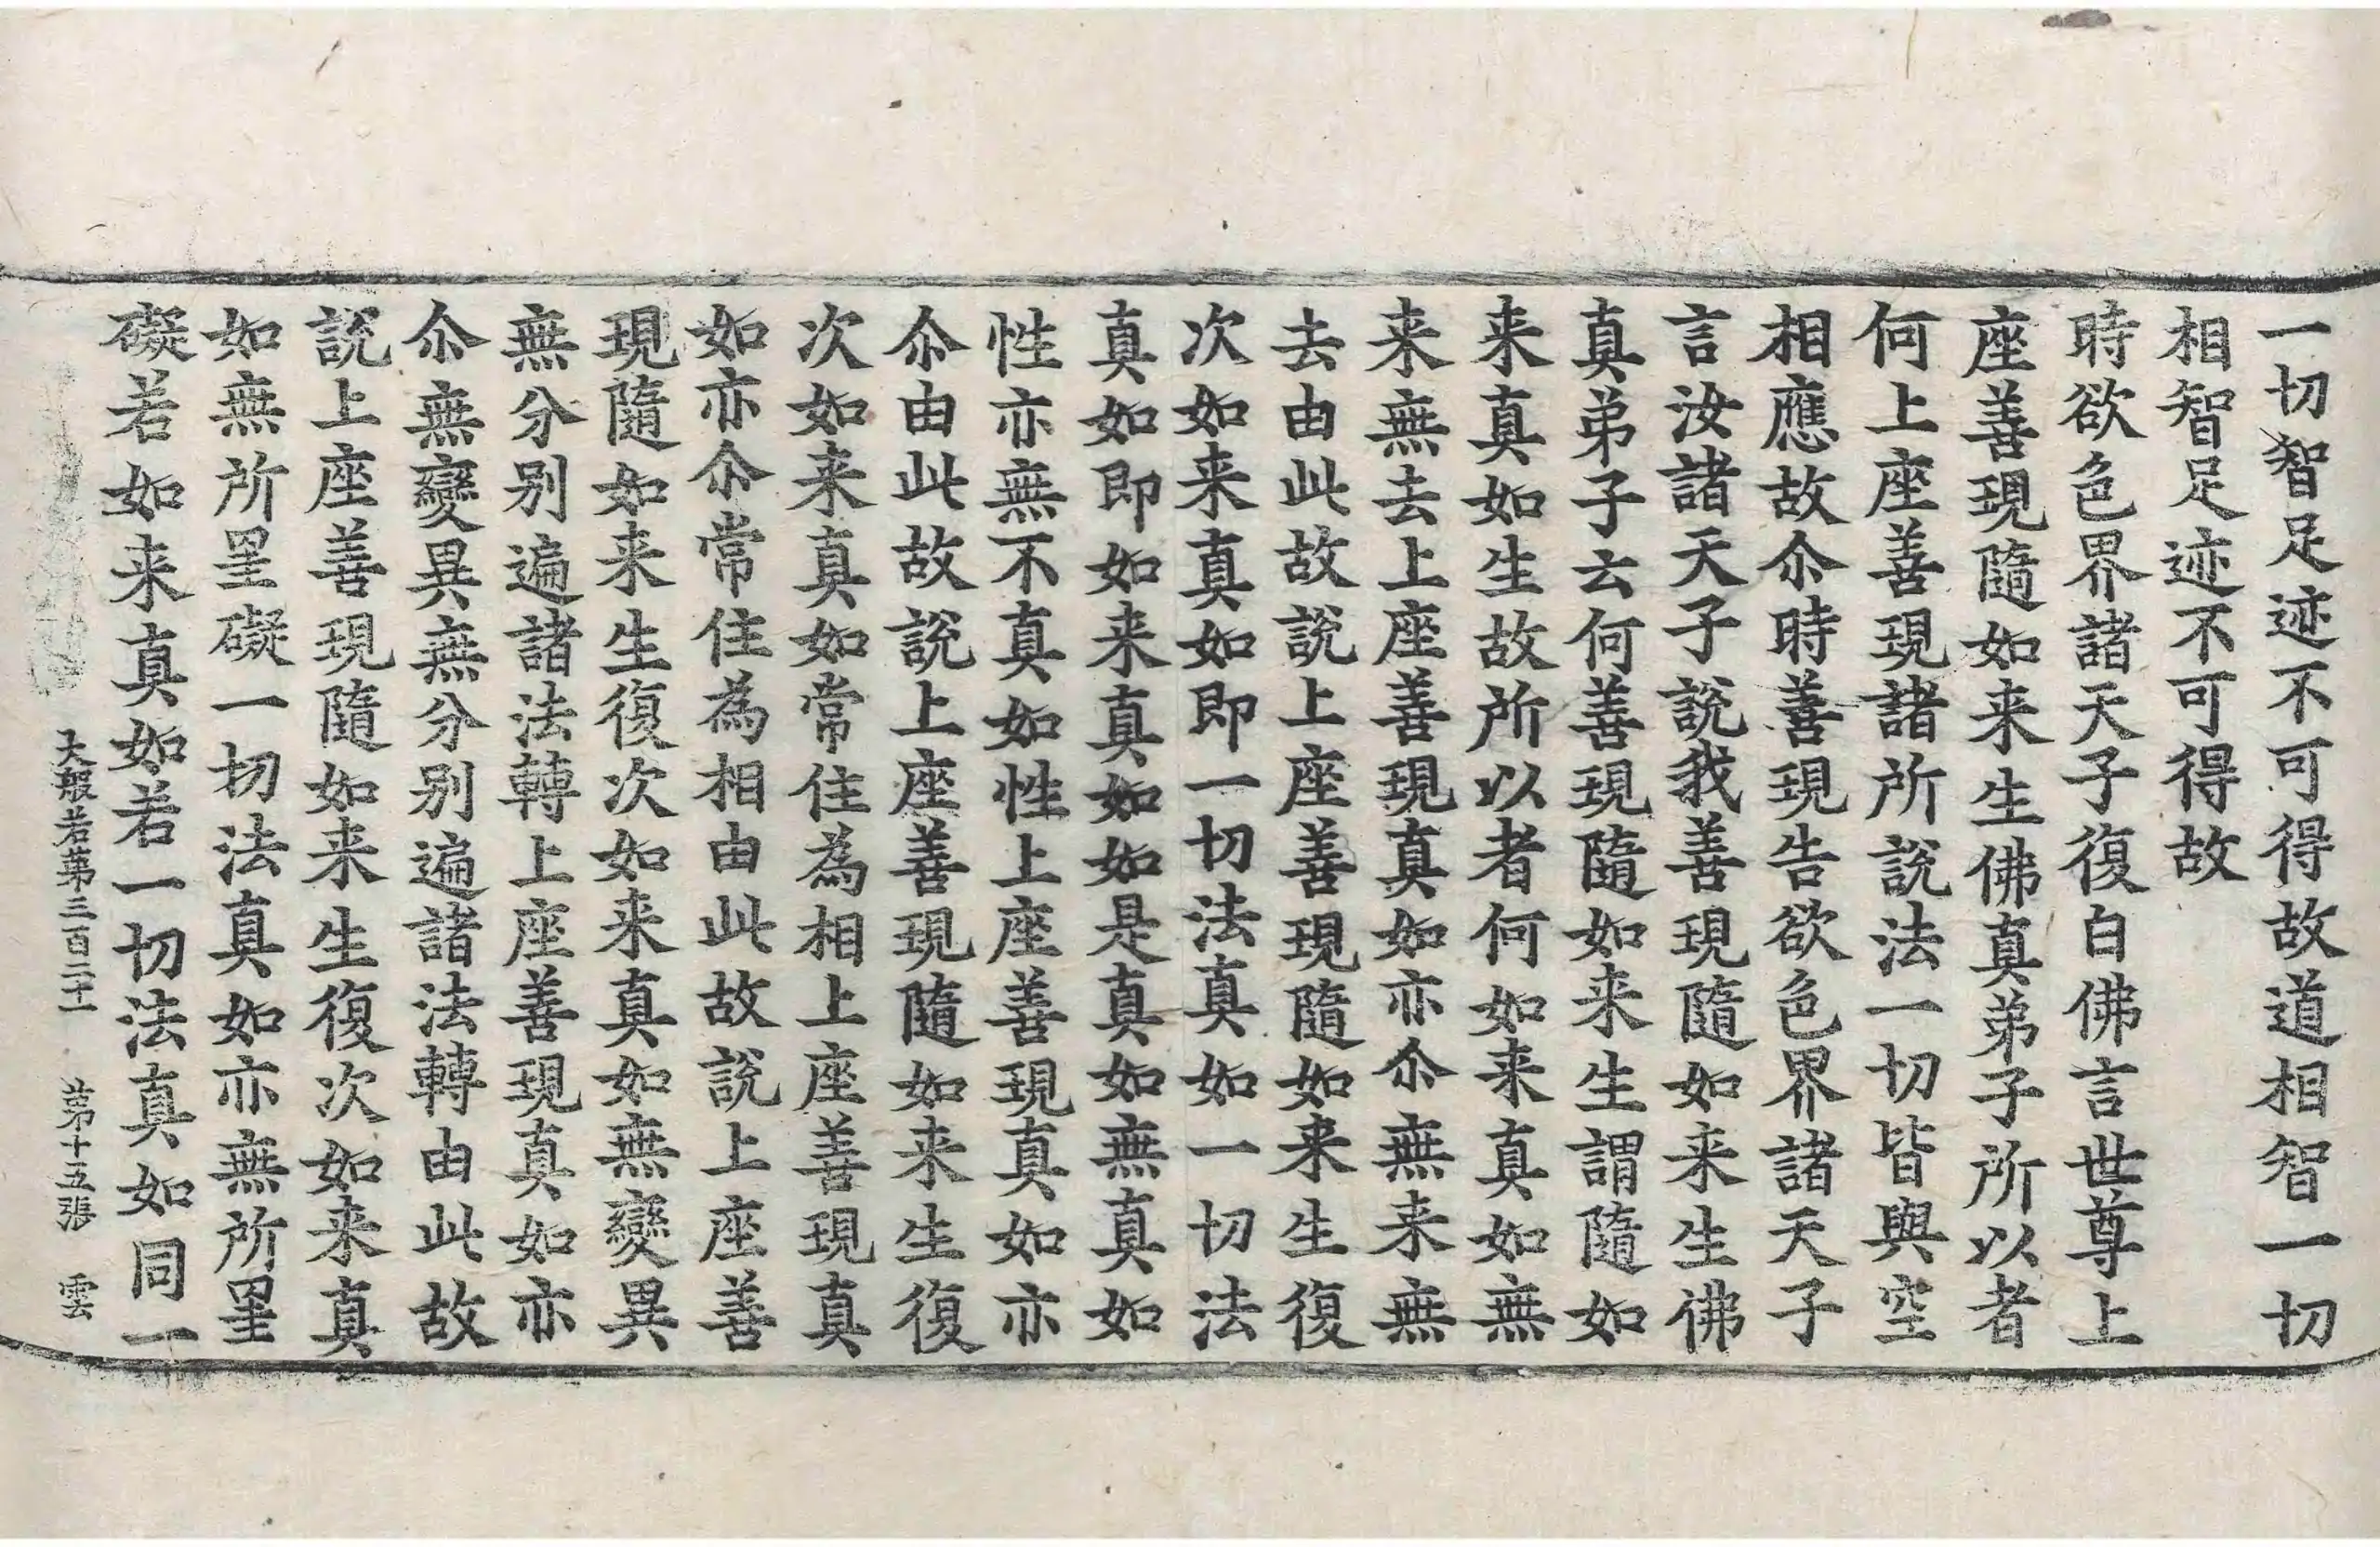 一切智足迹不可得故道相智一切
相智足迹不可得故
時欲色界諸天子復白佛言世尊上
座善現隨如来生佛真弟子所以者
何上座善現諸所說法一切皆與空
相應故尒時善現告欲色界諸天子
言汝諸天子說我善現隨如来生佛
真弟子云何善現隨如来生謂隨如
来真如生故所以者何如来真如無
来無去上座善現真如亦尒無来無
去由此故說上座善現隨如来生復
次如来真如即一切法真如一切法
真如即如来真如如是真如無真如
性亦無不真如性上座善現真如亦
尒由此故說上座善現隨如来生復
次如来真如常住為相上座善現真
如亦尒常住為相由此故說上座善
現隨如来生復次如来真如無變異
無分別遍諸法轉上座善現真如亦
尒無變異無分別遍諸法轉由此故
說上座善現隨如来生復次如来真
如無所罣礙一切法真如亦無所罣
礙若如来真如若一切法真如同一
大般若第三百二十一 第十五張 雲